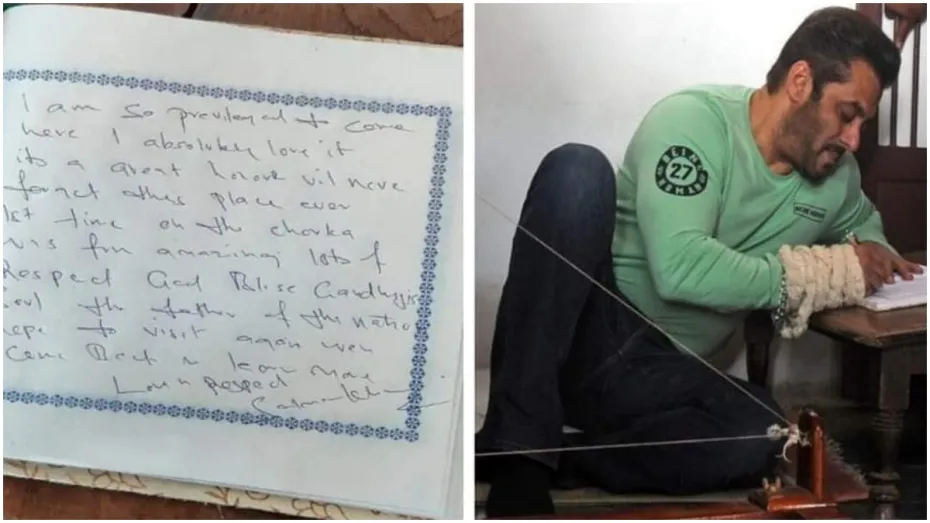 I am so previleged to come
here I absolutely love it
its a great honour vil neve
forget this place ever
1st time on the charka
was fun amazing lots of
Respect God Bless Gandhijis
soul the father of the natio
hope to visit again wen
Come Back n learn more
Love n Respect
Salman Khan
BEING
27
HUMAN